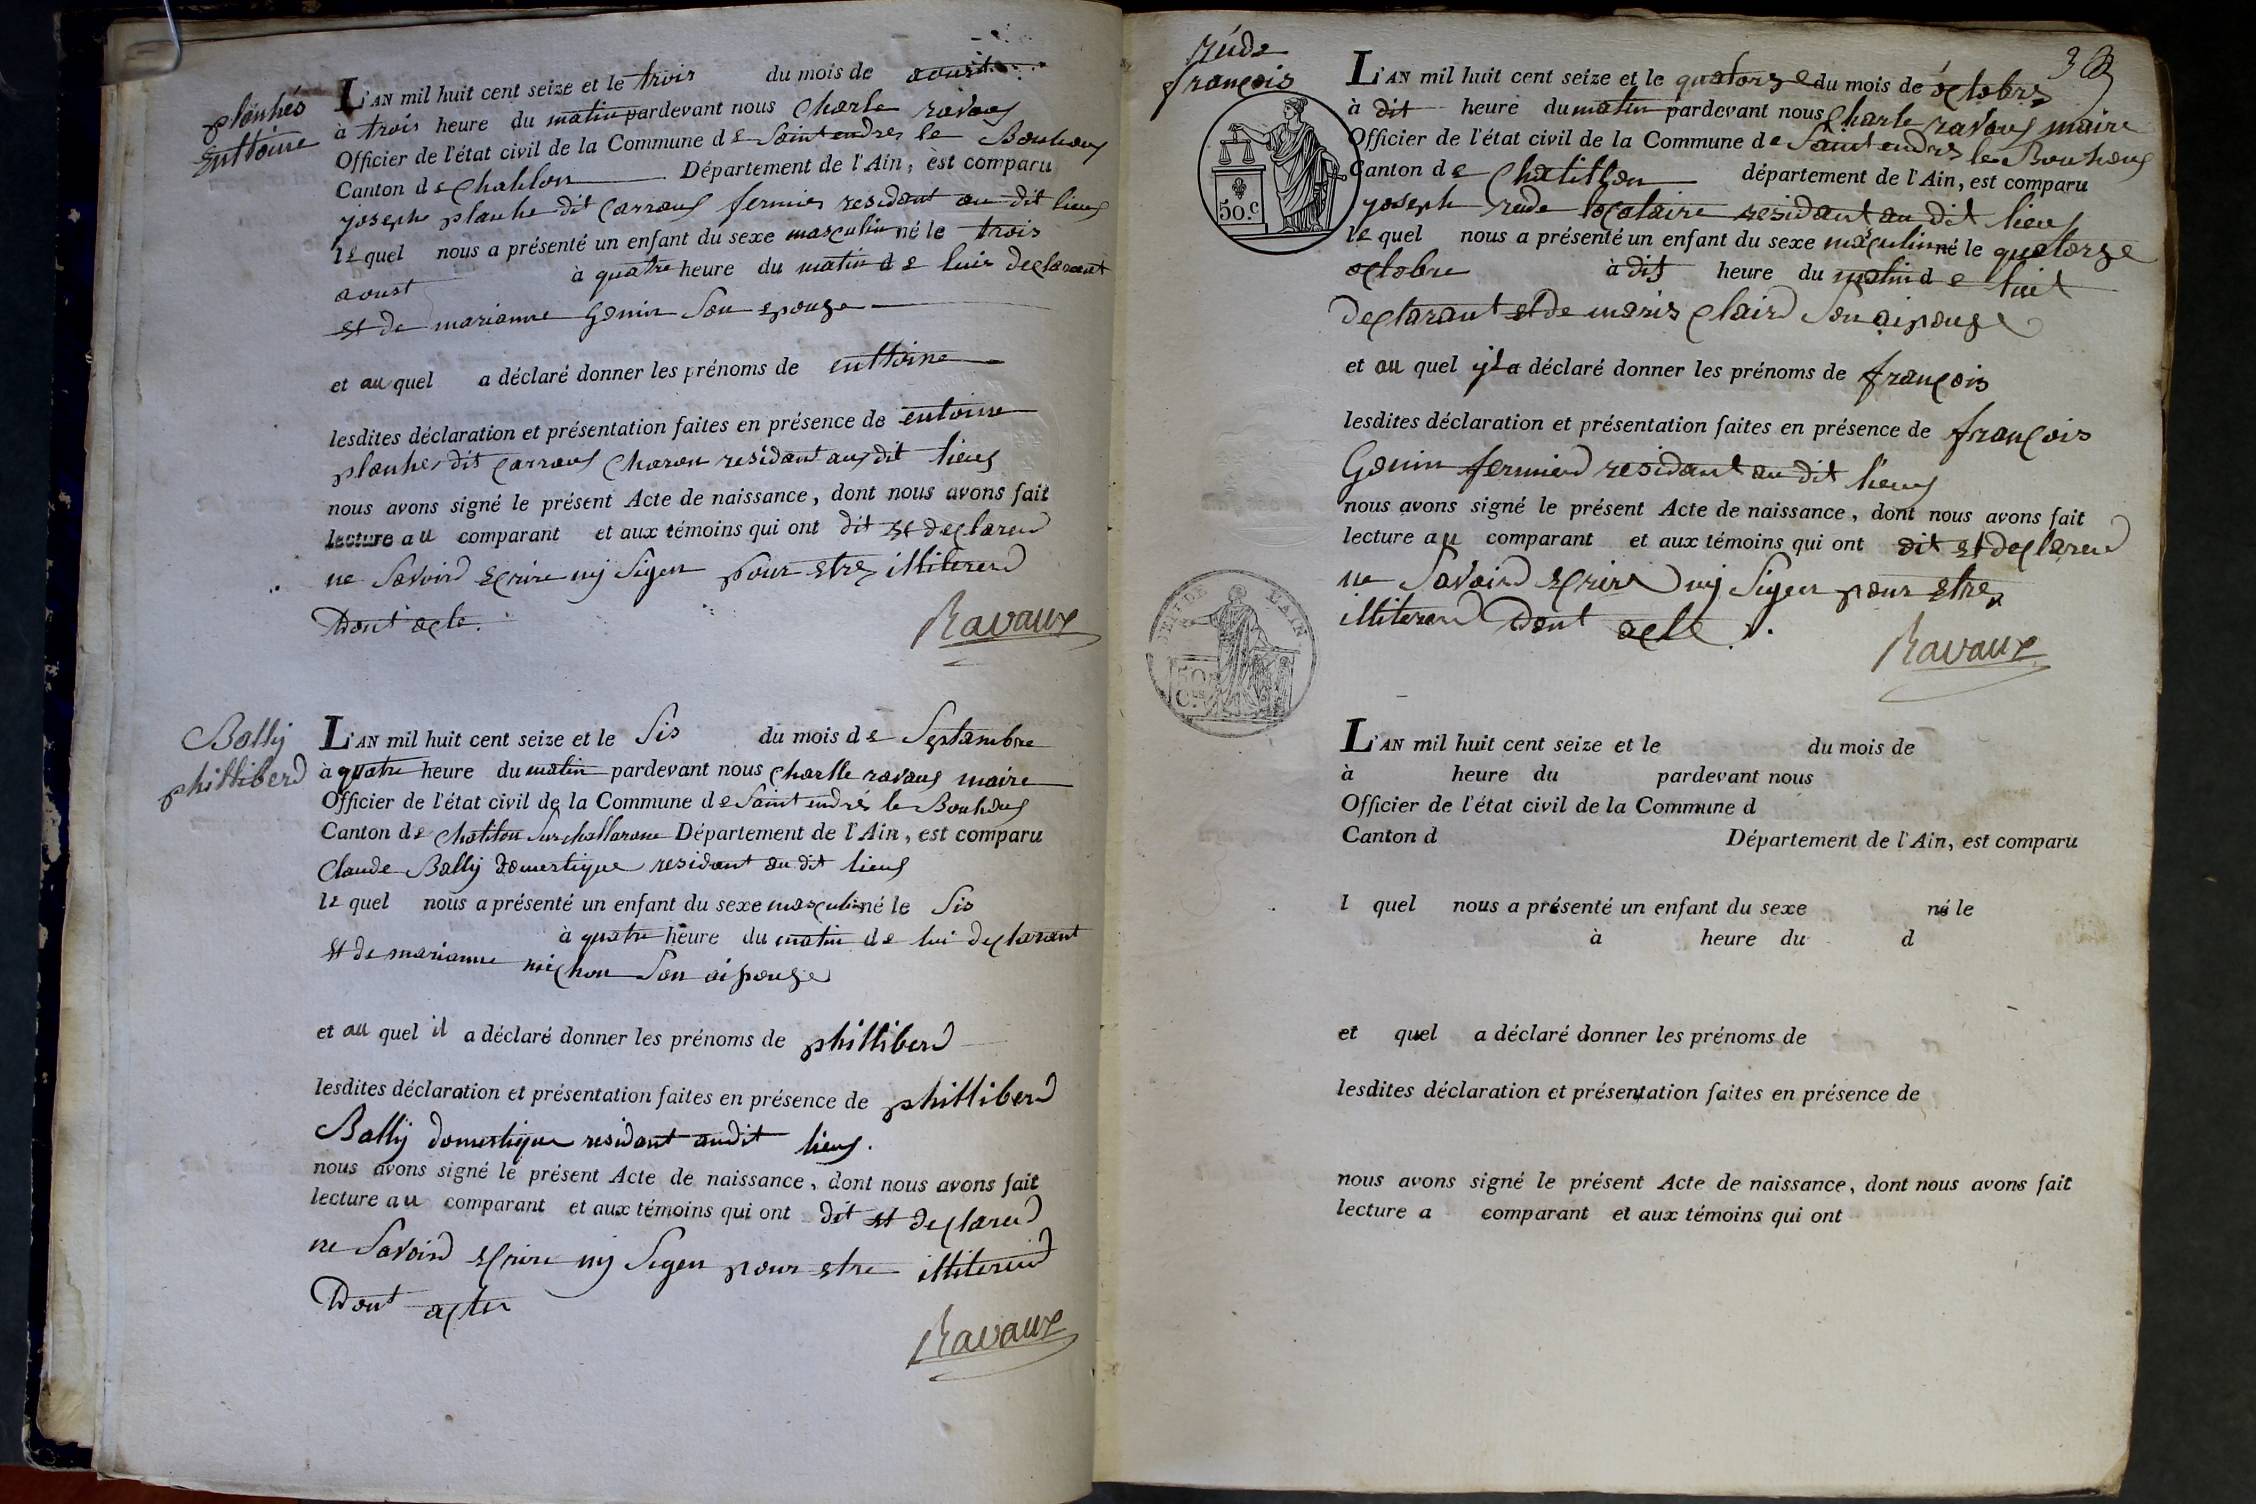 planhés
enttoine
L'AN mil huit cent seize et le trois du mois de aoust
à trois heure du matin pardevant nous Charle ravaux
Officier de l'état civil de la Commune de Saint endres le Bouhoux
Canton de Chatilon Département de l'Ain, est comparu
joseph planhe dit Carraux fermier residant au dit lieux
le quel nous a présenté un enfant du sexe masculin né le trois
aoust à quatre heure du matin de luis declarant
et de marianne Genin Son epouze
et au quel a déclaré donner les prénoms de enttoine
lesdites déclaration et présentation faites en présence de entoine
planhe dit Carraux Charon residant aux dit lieux
nous avons signé le présent Acte de naissance, dont nous avons fait
lecture au comparant et aux témoins qui ont dit et declareu
ne Savoird ecrire nij Signer pour etre illitereud
Dont acte.
Ravaux
Bally
phillibend
L'AN mil huit cent seize et le Sis du mois de Septambre
à quatre heure du matin pardevant nous Charlle ravaux maire
Officier de l'état civil de la Commune de Saint endrés le Bouhoux
Canton de Chatilon Sur challarone Département de l'Ain, est comparu
Claude Bally domestique residant au dit lieux
le quel nous a présenté un enfant du sexe masculin né le Sis
à quatre heure du matin de lui declarant
et de marianne michon Son aipouze
et au quel il a déclaré donner les prénoms de phillibend
lesdites déclaration et présentation faites en présence de phillibend
Bally domestique residant audit lieux.
nous avons signé le présent Acte de naissance, dont nous avons fait
lecture au comparant et aux témoins qui ont dit et declareud
ne Savoird ecrire nij Signer pour etre illitereud
Dont acte
Ravaux
rúde
françois
L'AN mil huit cent seize et le quatorze du mois de octobre
à dit heure du matin pardevant nous Charle ravaux maire
Officier de l'état civil de la Commune de Saint endres le Bouhoux
Canton de Chatillon département de l'Ain, est comparu
joseph rude locataire residant au dit lieux
le quel nous a présenté un enfant du sexe masculin né le quatorze
octobre à dis heure du matin de luit
declarant et de marie Claird Son aipouze
et au quel yl a déclaré donner les prénoms de françois
lesdites déclaration et présentation faites en présence de françois
Genin fermierd residant au dit lieux
nous avons signé le présent Acte de naissance, dont nous avons fait
lecture au comparant et aux témoins qui ont dit et declareud
ne Savoird ecrire nij Signer pour etre
illitereud Dont acte.
Ravaux
50.c
DEPT DE L'AIN
50
Cs
L'AN mil huit cent seize et le du mois de
à heure du pardevant nous
Officier de l'état civil de la Commune d
Canton d Département de l'Ain, est comparu
l quel nous a présenté un enfant du sexe né le
à heure du d
et quel a déclaré donner les prénoms de
lesdites déclaration et présentation faites en présence de
nous avons signé le présent Acte de naissance, dont nous avons fait
lecture a comparant et aux témoins qui ont